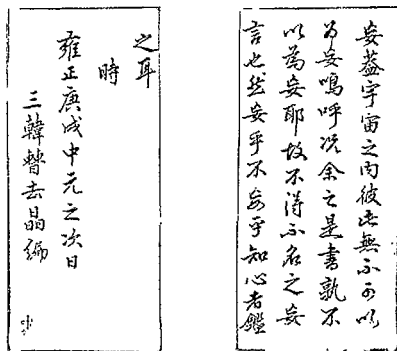 妄蓋宇宙之内彼此無不可以
為妄嗚呼况余之是書孰不
以為妄耶故不得不名之妄
言也然妄乎不妄乎知心者鑑
之耳
時
雍正庚戌中元之次日
三韓曹去晶編